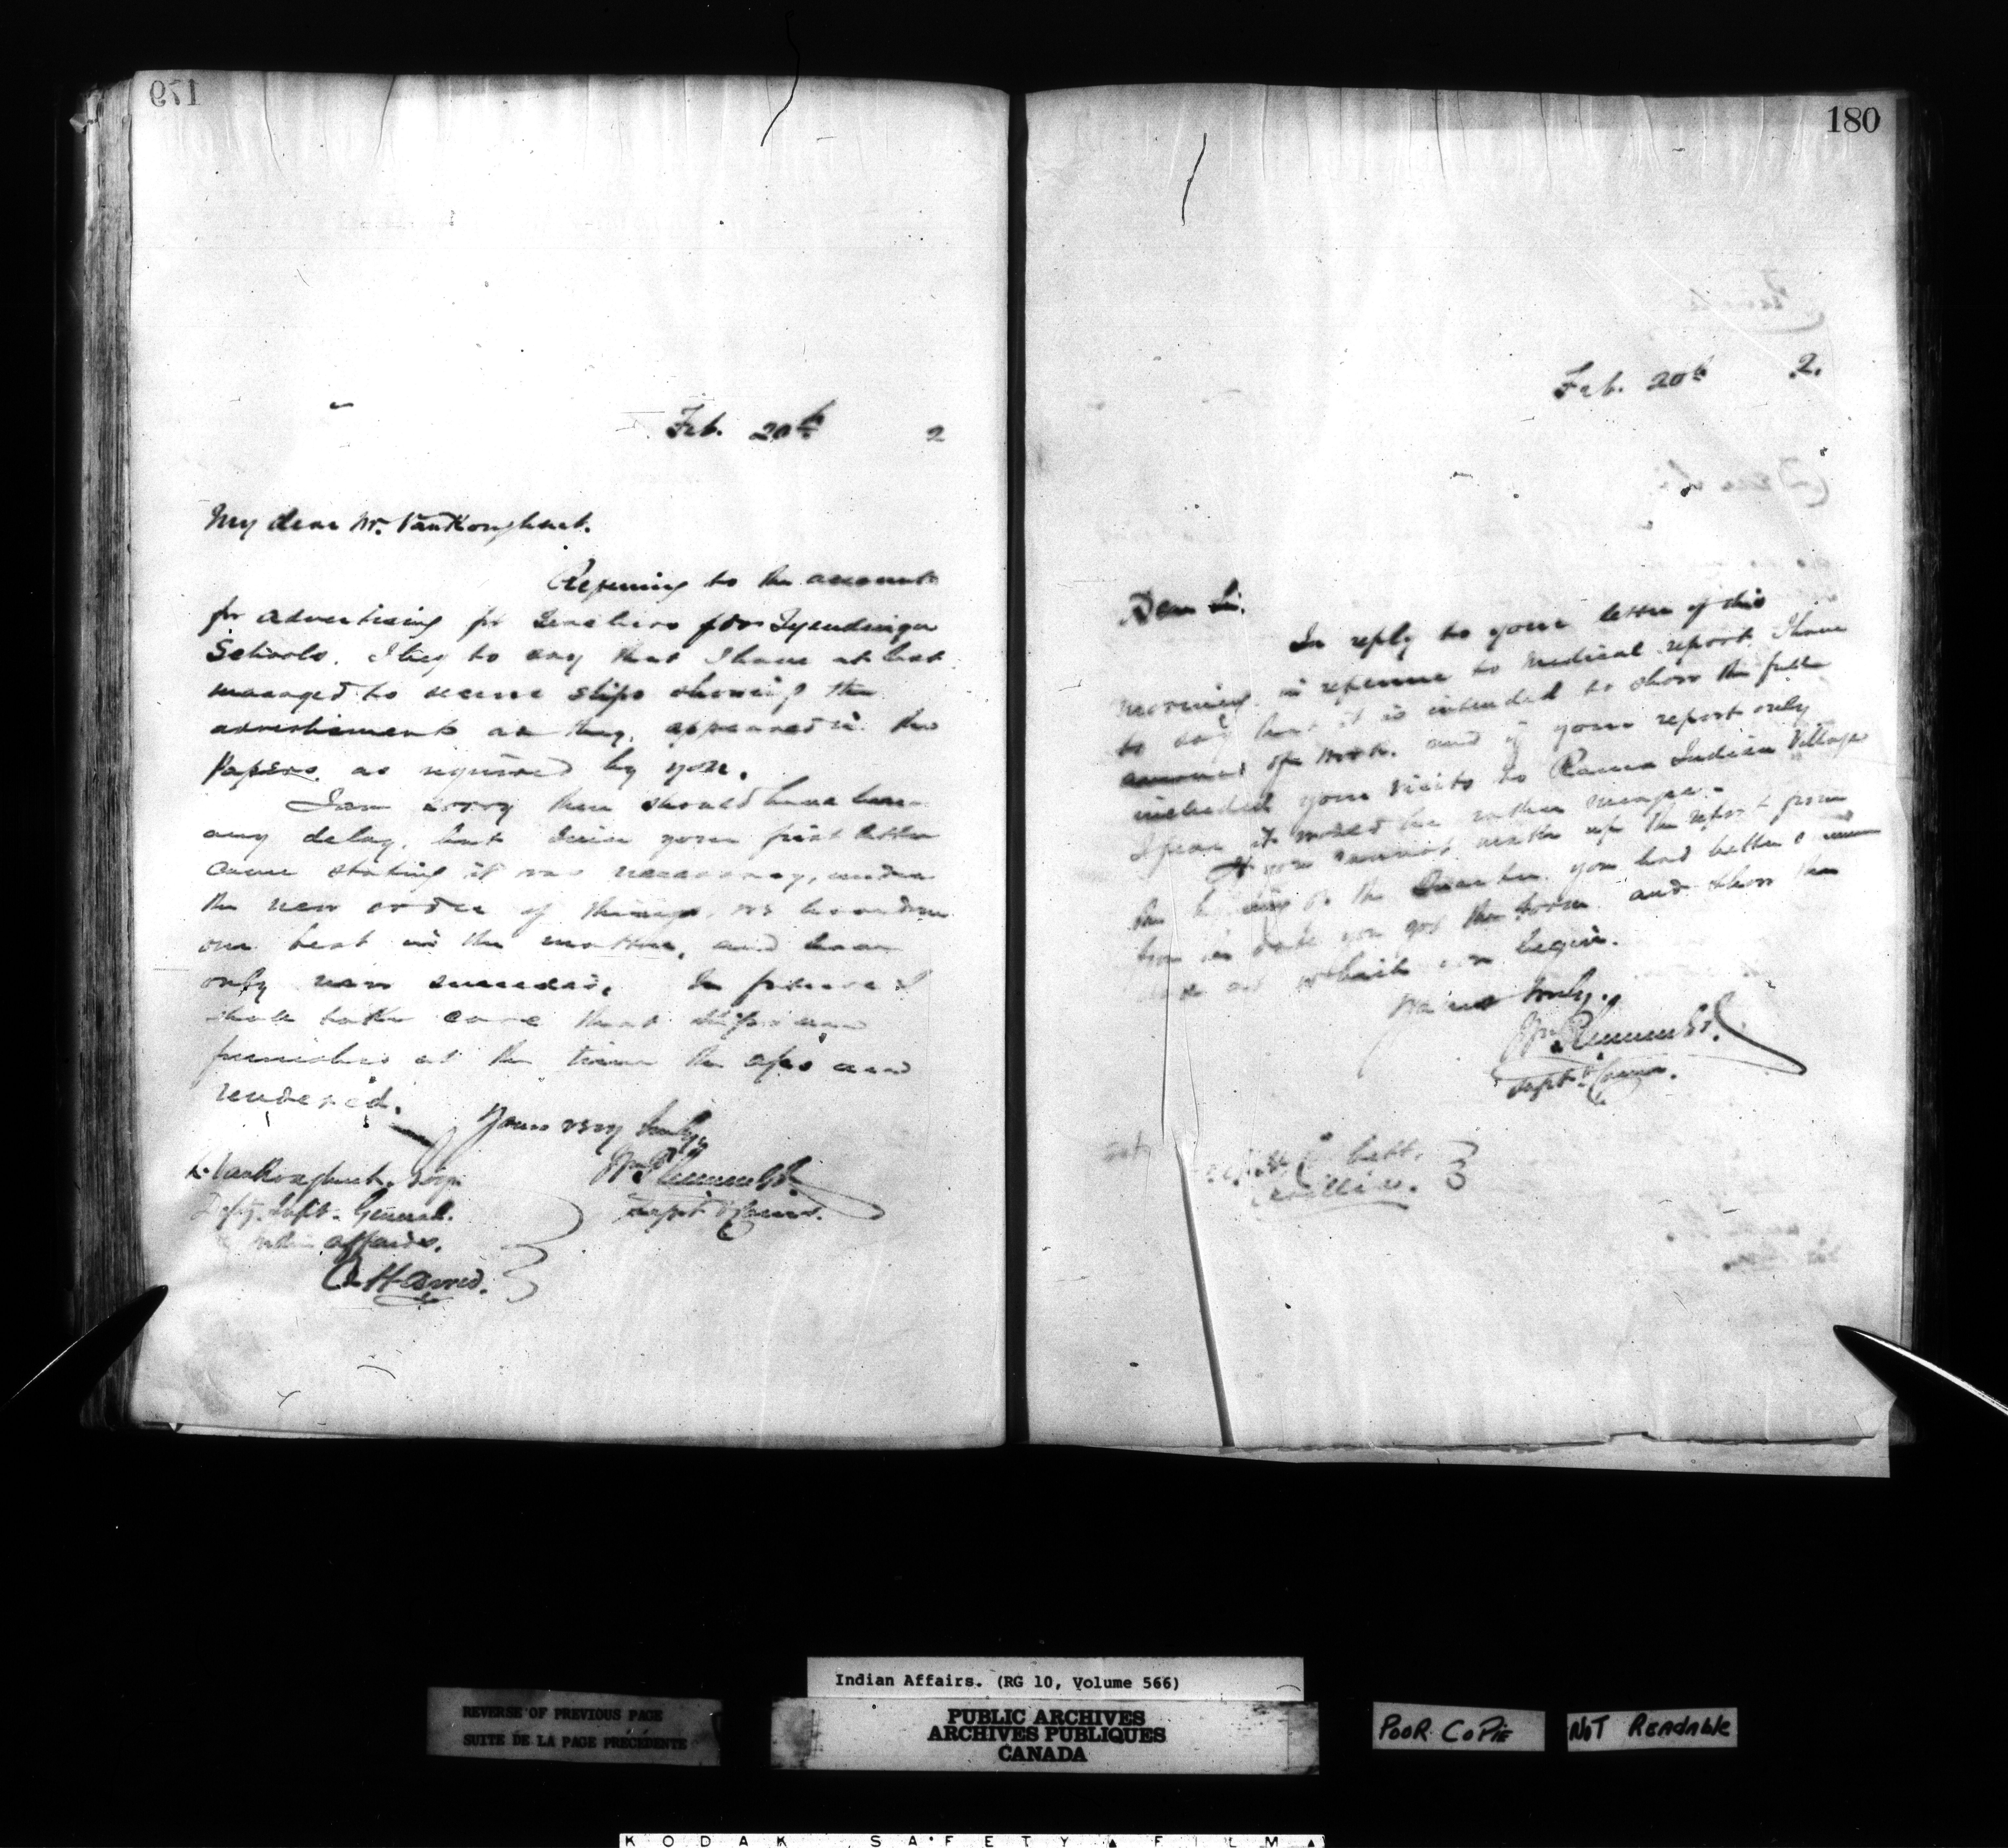 179
Feb. 20th 2
My dear Mr. VanKoughnet.
Referring to the accounts
for advertising for Teachers for Tyendinaga
Schools, I beg to say that I have at last
managed to secure slips showing the
advertisements as they appeared in the
Papers as required by you.
I am sorry there should have been
any delay, but since your first letter
came stating it was necessary, under
the new order of things, we have done
our best in the matter, and have
only now succeeded. In future I
shall take care that slips are
furnished at the time the a/cs are
rendered.
Yours very truly,
Wm Plummer
Supt & Comr.
L. VanKoughnet, Esqr
Depy. Supt. General
Indian Affairs.
Ottawa.
180
Feb. 20th 2.
Dear Sir,
In reply to your letter of this
morning in reference to medical report, I have
to say that it is intended to show the full
amount of work, and if your report only
included your visits to Rama Indian Village
I fear it would be rather meagre.
If you cannot make up the report from
the beginning of the Quarter you had better
from the date you got the form and show the
at which you begin.
Yours truly,
Wm Plummer
Supt & Comr.
Corbett,
Orillia.
Indian Affairs. (RG 10, Volume 566)
REVERSE OF PREVIOUS PAGE
SUITE DE LA PAGE PRÉCÉDENTE
PUBLIC ARCHIVES
ARCHIVES PUBLIQUES
CANADA
POOR COPIE
NOT READABLE
KODAK SAFETY FILM